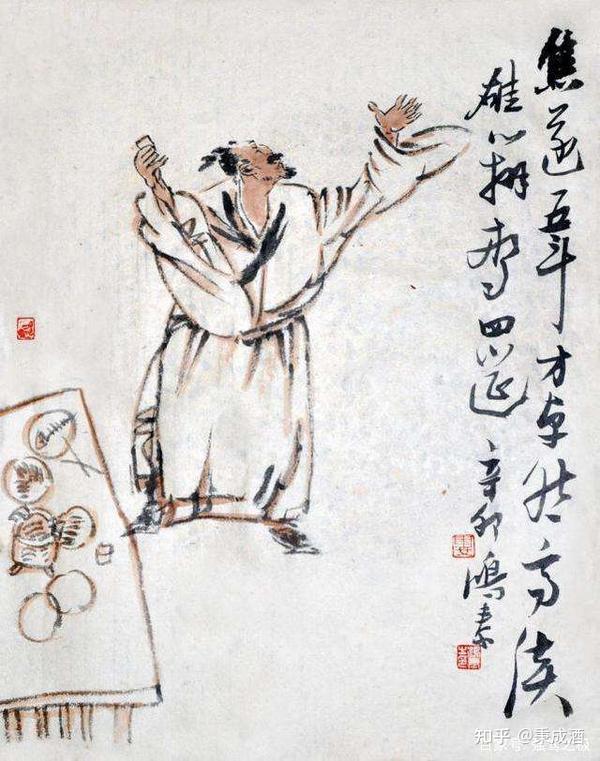 焦遂五斗方卓然高谈
雄辩驚四筵 辛卯 鴻素
知乎 @秉成酒